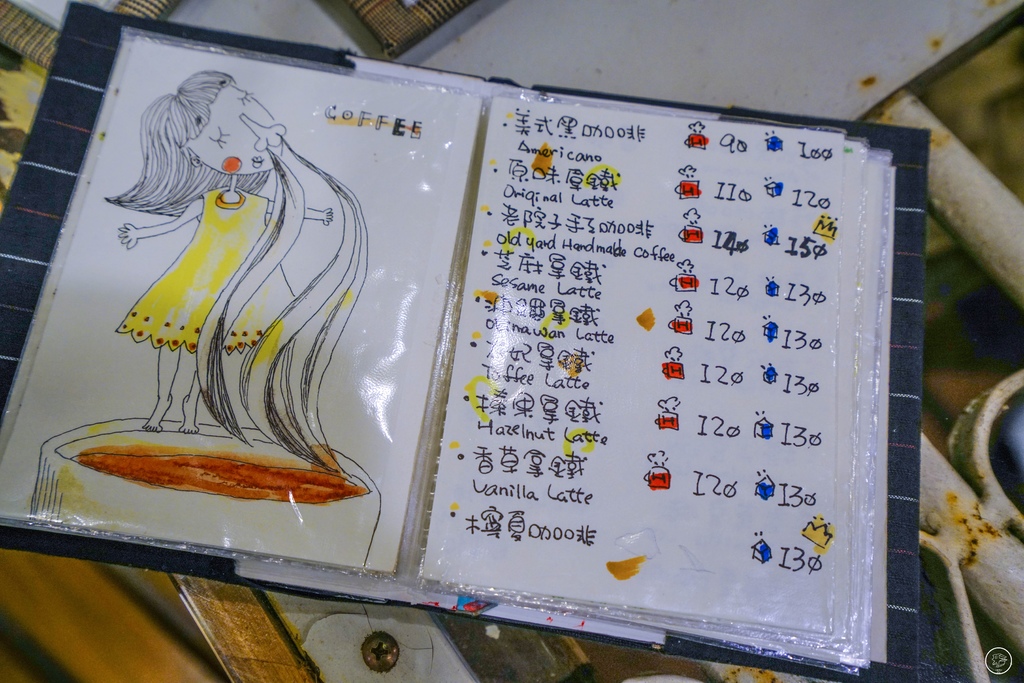 COFFEE
美式黑咖啡 90 100
Americano
原味拿鐵 110 120
Original Latte
老院子手工咖啡 140 150
Old yard Handmade Coffee
芝麻拿鐵 120 130
Sesame Latte
沖繩拿鐵 120 130
Okinawan Latte
太妃拿鐵 120 130
Toffee Latte
榛果拿鐵 120 130
Hazelnut Latte
香草拿鐵 120 130
Vanilla Latte
檸夏咖啡 130